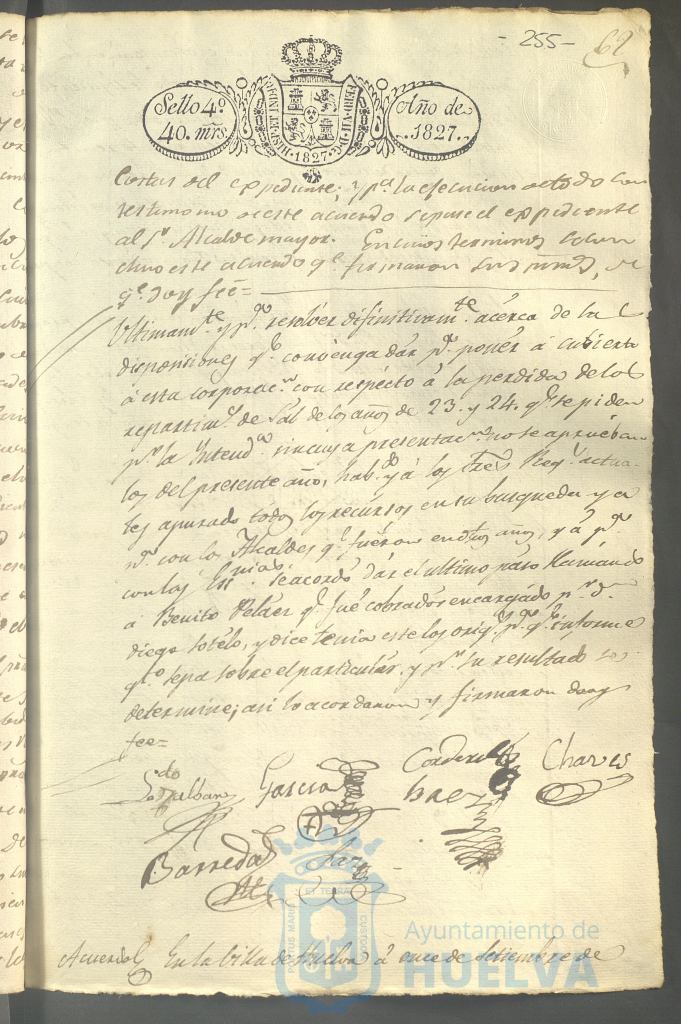 - 255 -
62
Sello 4º
40. mrs.
FERD. VII. D. G. HISP. ET IND. R. 1827.
Año de
1827.
Costas del expediente; y pª la ejecucion de todo con
testimonio de este acuerdo se pase el expediente
al Sr Alcalde mayor. En cuios terminos se con
cluio este acuerdo qe firmaron sus mrds, de
qe doy fee=
Ultimamte y pª resolver difinitivamte acerca de las
disposiciones qe convenga dar pª poner á cubierto
á esta corporacn con respecto á la perdida de los
repartimtos de Sal de los años de 23. y 24. qe se piden
pr la Intenda sin cuya presentacn no se aprueban
los del presente año, habdo ya los Tres Regs actua
les apurado todos los recursos en su busqueda ya
pr con los Alcaldes qe fueron en dhos años, y á pr
con los Se acordó dar el ultimo paso llamando
a Benito Pelaez qe fué cobrador encargado pr Dn
diego Sotélo, y dice tenia este los origs pª qe informe
qto sepa sobre el particular, y pr su resultado se
determine; asi lo acordaron y firmaron doy
fee=
Ldo Garcia Cordero Chaves
Baez
Barreda
PORTUS MARIS ET TERRAE CUSTODIA
Ayuntamiento de
HUELVA
Acuerdo En la Villa de Huelva á once de Setiembre de